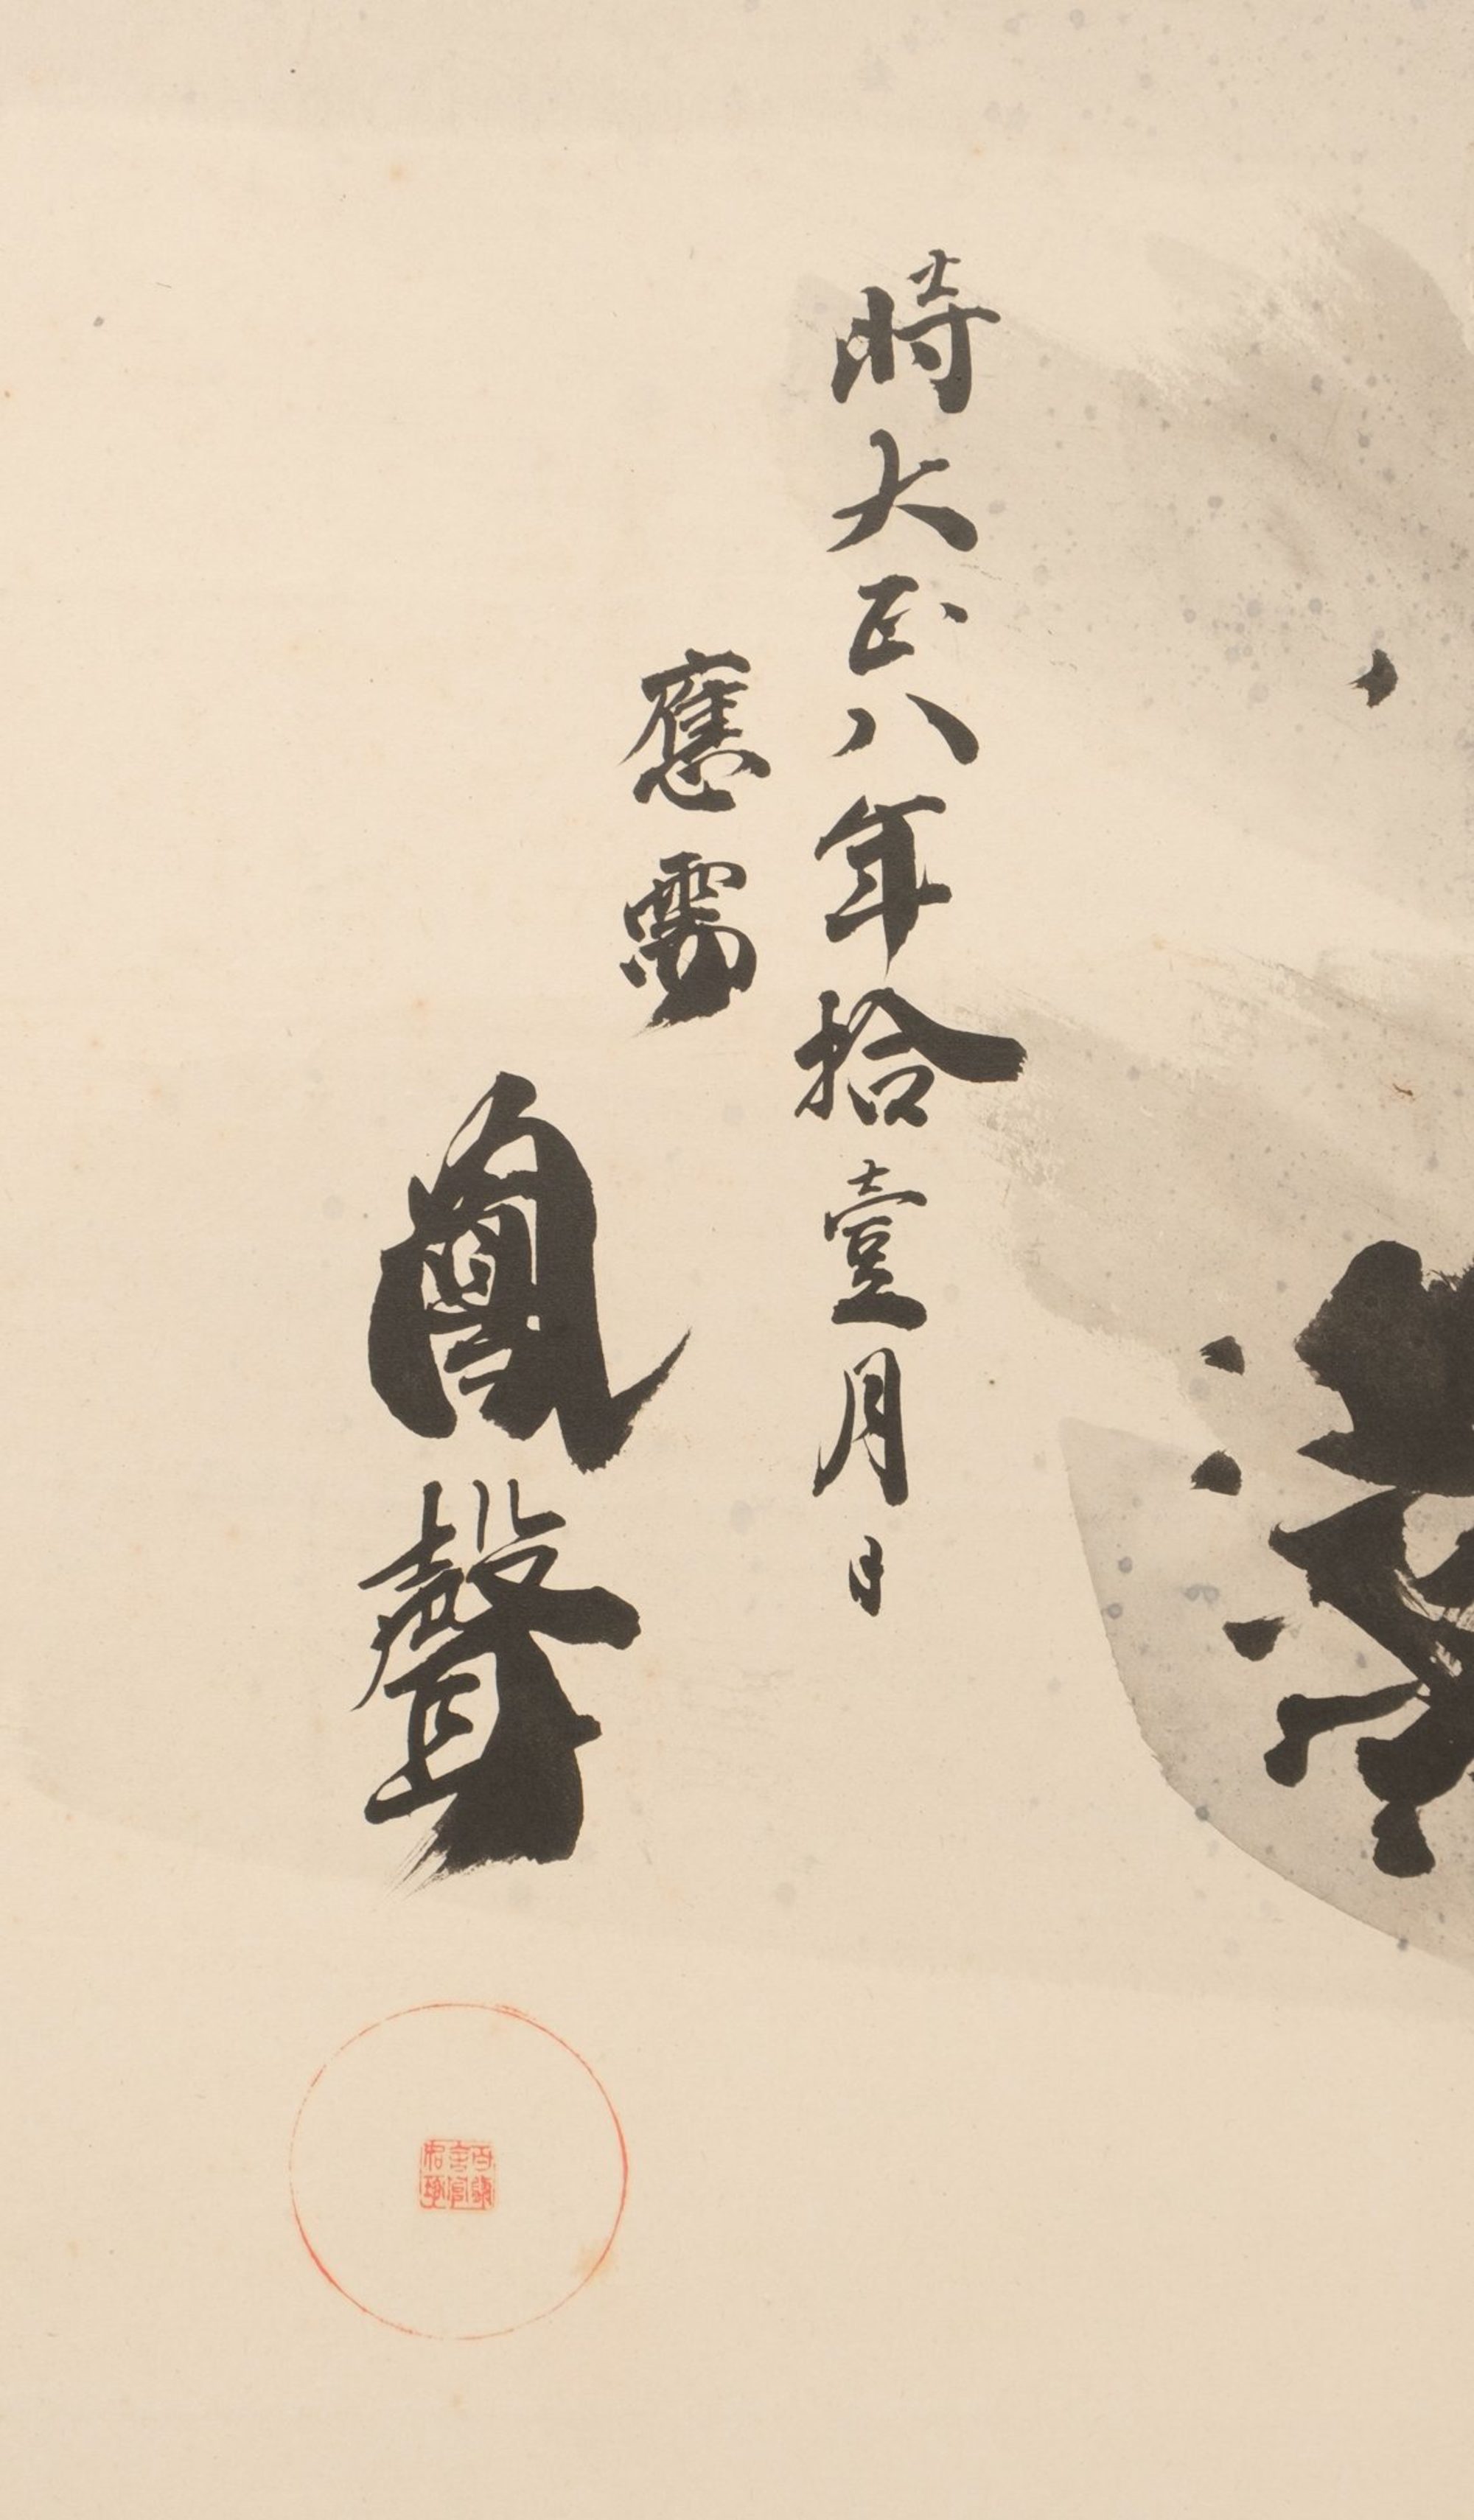 時大正八年拾壹月日
應需
鳳聲